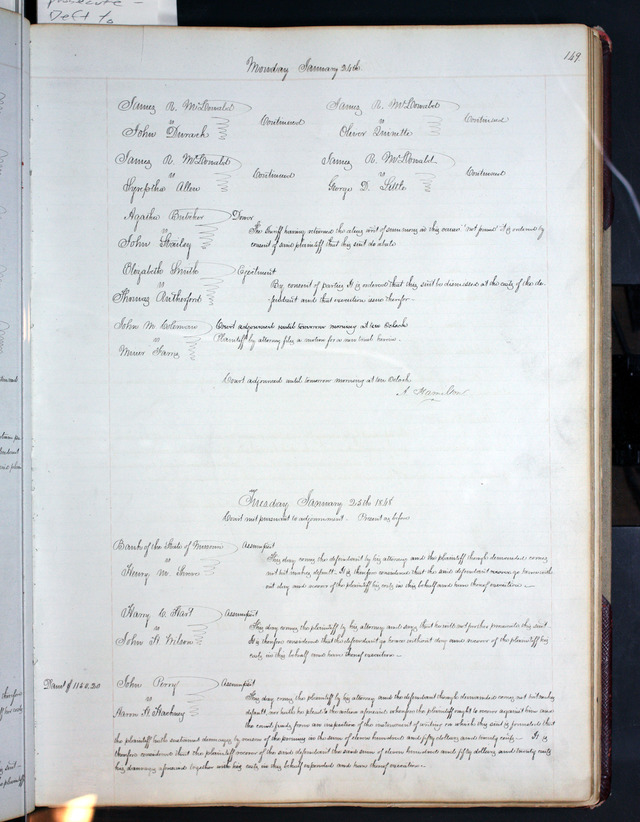 prosecute -
Deft to
149
Monday January 24th
James R. McDonald
vs
John Durack
Continued
James R. McDonald
vs
Oliver
Continued
James R. McDonald
vs
Synptha Allen
Continued
James R. McDonald
vs
George D. Little
Continued
Agatha Butcher
vs
John Shailey
Dower
The Sheriff having returned the alias writ of summons in this cause "not found" It is ordered by
consent of said plaintiff that this suit do abate
Elizabeth Smith
vs
Thomas Rutherford
Ejectment
By consent of parties It is ordered that this suit be dismissed at the costs of the de-
-fendant and that execution issue therefor
John M. Coleman
vs
Court adjourned until tomorrow morning at ten Oclock
Plaintiff by attorney files a motion for a new trial herein
Court adjourned until tomorrow morning at ten Oclock
A. Hamilton
Tuesday January 25th 1848
Court met pursuant to adjournment. Present as before
Bank of the State of Missouri
vs
Henry M.
Assumpsit
This day comes the defendant by his attorney and the plaintiff though demanded comes
not but makes default. It is therefore considered that the said defendant go hence with-
out day and recover of the plaintiff his costs in this behalf and have thereof execution
Harry C. Hart
vs
John H. Wilson
Assumpsit
This day comes the plaintiff by his attorney and says that he will not further prosecute this suit
It is therefore considered that the defendant go hence without day and recover of the plaintiff his
costs in this behalf and have thereof execution
Dam't $1150.20
John Perry
vs
Aaron H. Hackney
Assumpsit
This day comes the plaintiff by his attorney and the defendant though demanded comes not but makes
default, nor hath he plead to the action aforesaid wherefore the plaintiff ought to recover against him and
the court finds from an inspection of the instrument of writing on which this suit is founded that
the plaintiff hath sustained damages by reason of the premises in the sum of eleven hundred and fifty dollars and twenty cents. It is
therefore considered that the plaintiff recover of the said defendant the said sum of eleven hundred and fifty dollars and twenty cents
his damages aforesaid together with his costs in this behalf expended and have thereof execution